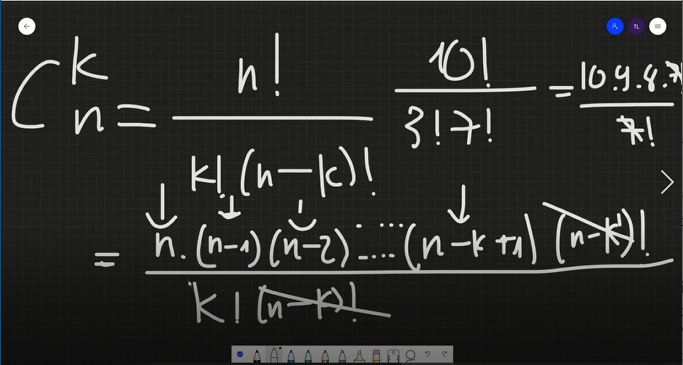 TL
C_n^k = n! / k!(n-k)!   10! / 3!7! = 10.9.8.7 / 7!
= n.(n-1)(n-2)....(n-k+1)(n-k)! / k!(n-k)!